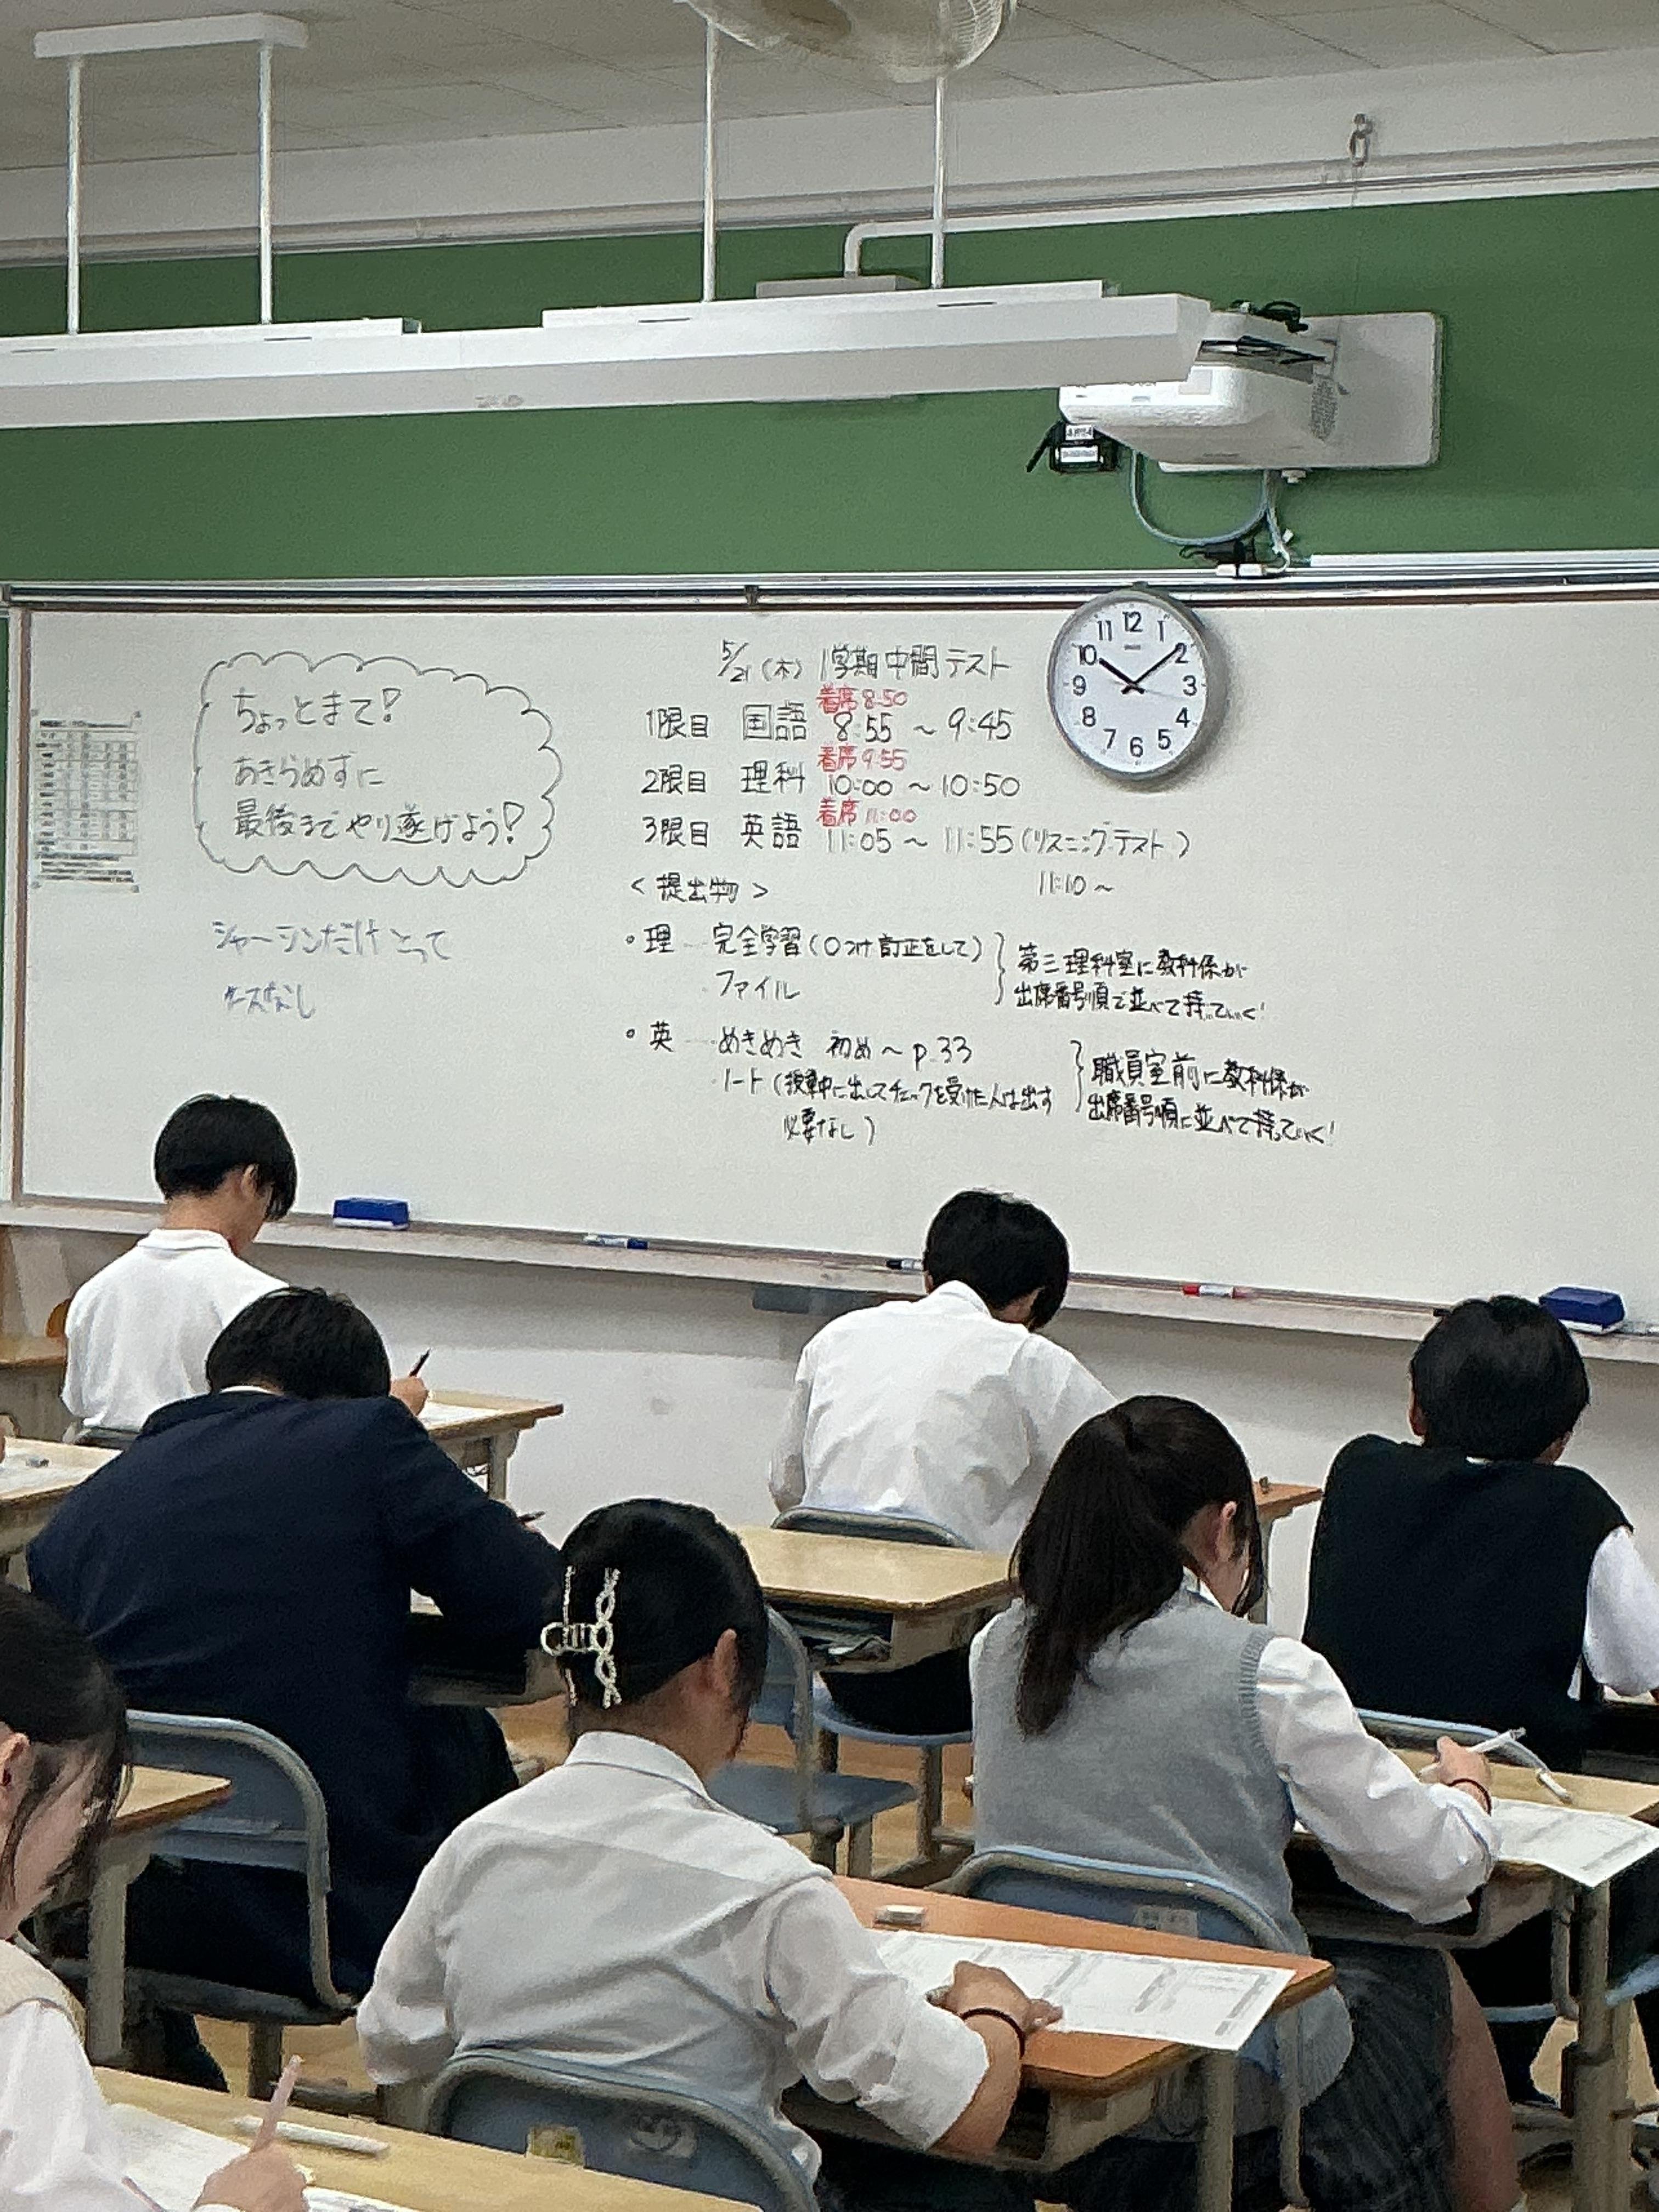 ちょっとまて!
あきらめずに
最後までやり遂げよう!
シャーシンだけとって
ケースなし
5/21(木) 1学期中間テスト
着席 8:50
1限目 国語 8:55 ~ 9:45
着席 9:55
2限目 理科 10:00 ~ 10:50
着席 11:00
3限目 英語 11:05 ~ 11:55(リスニングテスト)
11:10~
<提出物>
・理 … 完全学習(○つけ訂正をして)
・ファイル
第三理科室に教科係が
出席番号順で並べて持っていく!
・英 … めきめき 初め~p.33
・ノート(授業中に出してチェックを受けた人は出す
必要なし)
職員室前に教科係が
出席番号順に並べて持っていく!
12
1
2
3
4
5
6
7
8
9
10
11